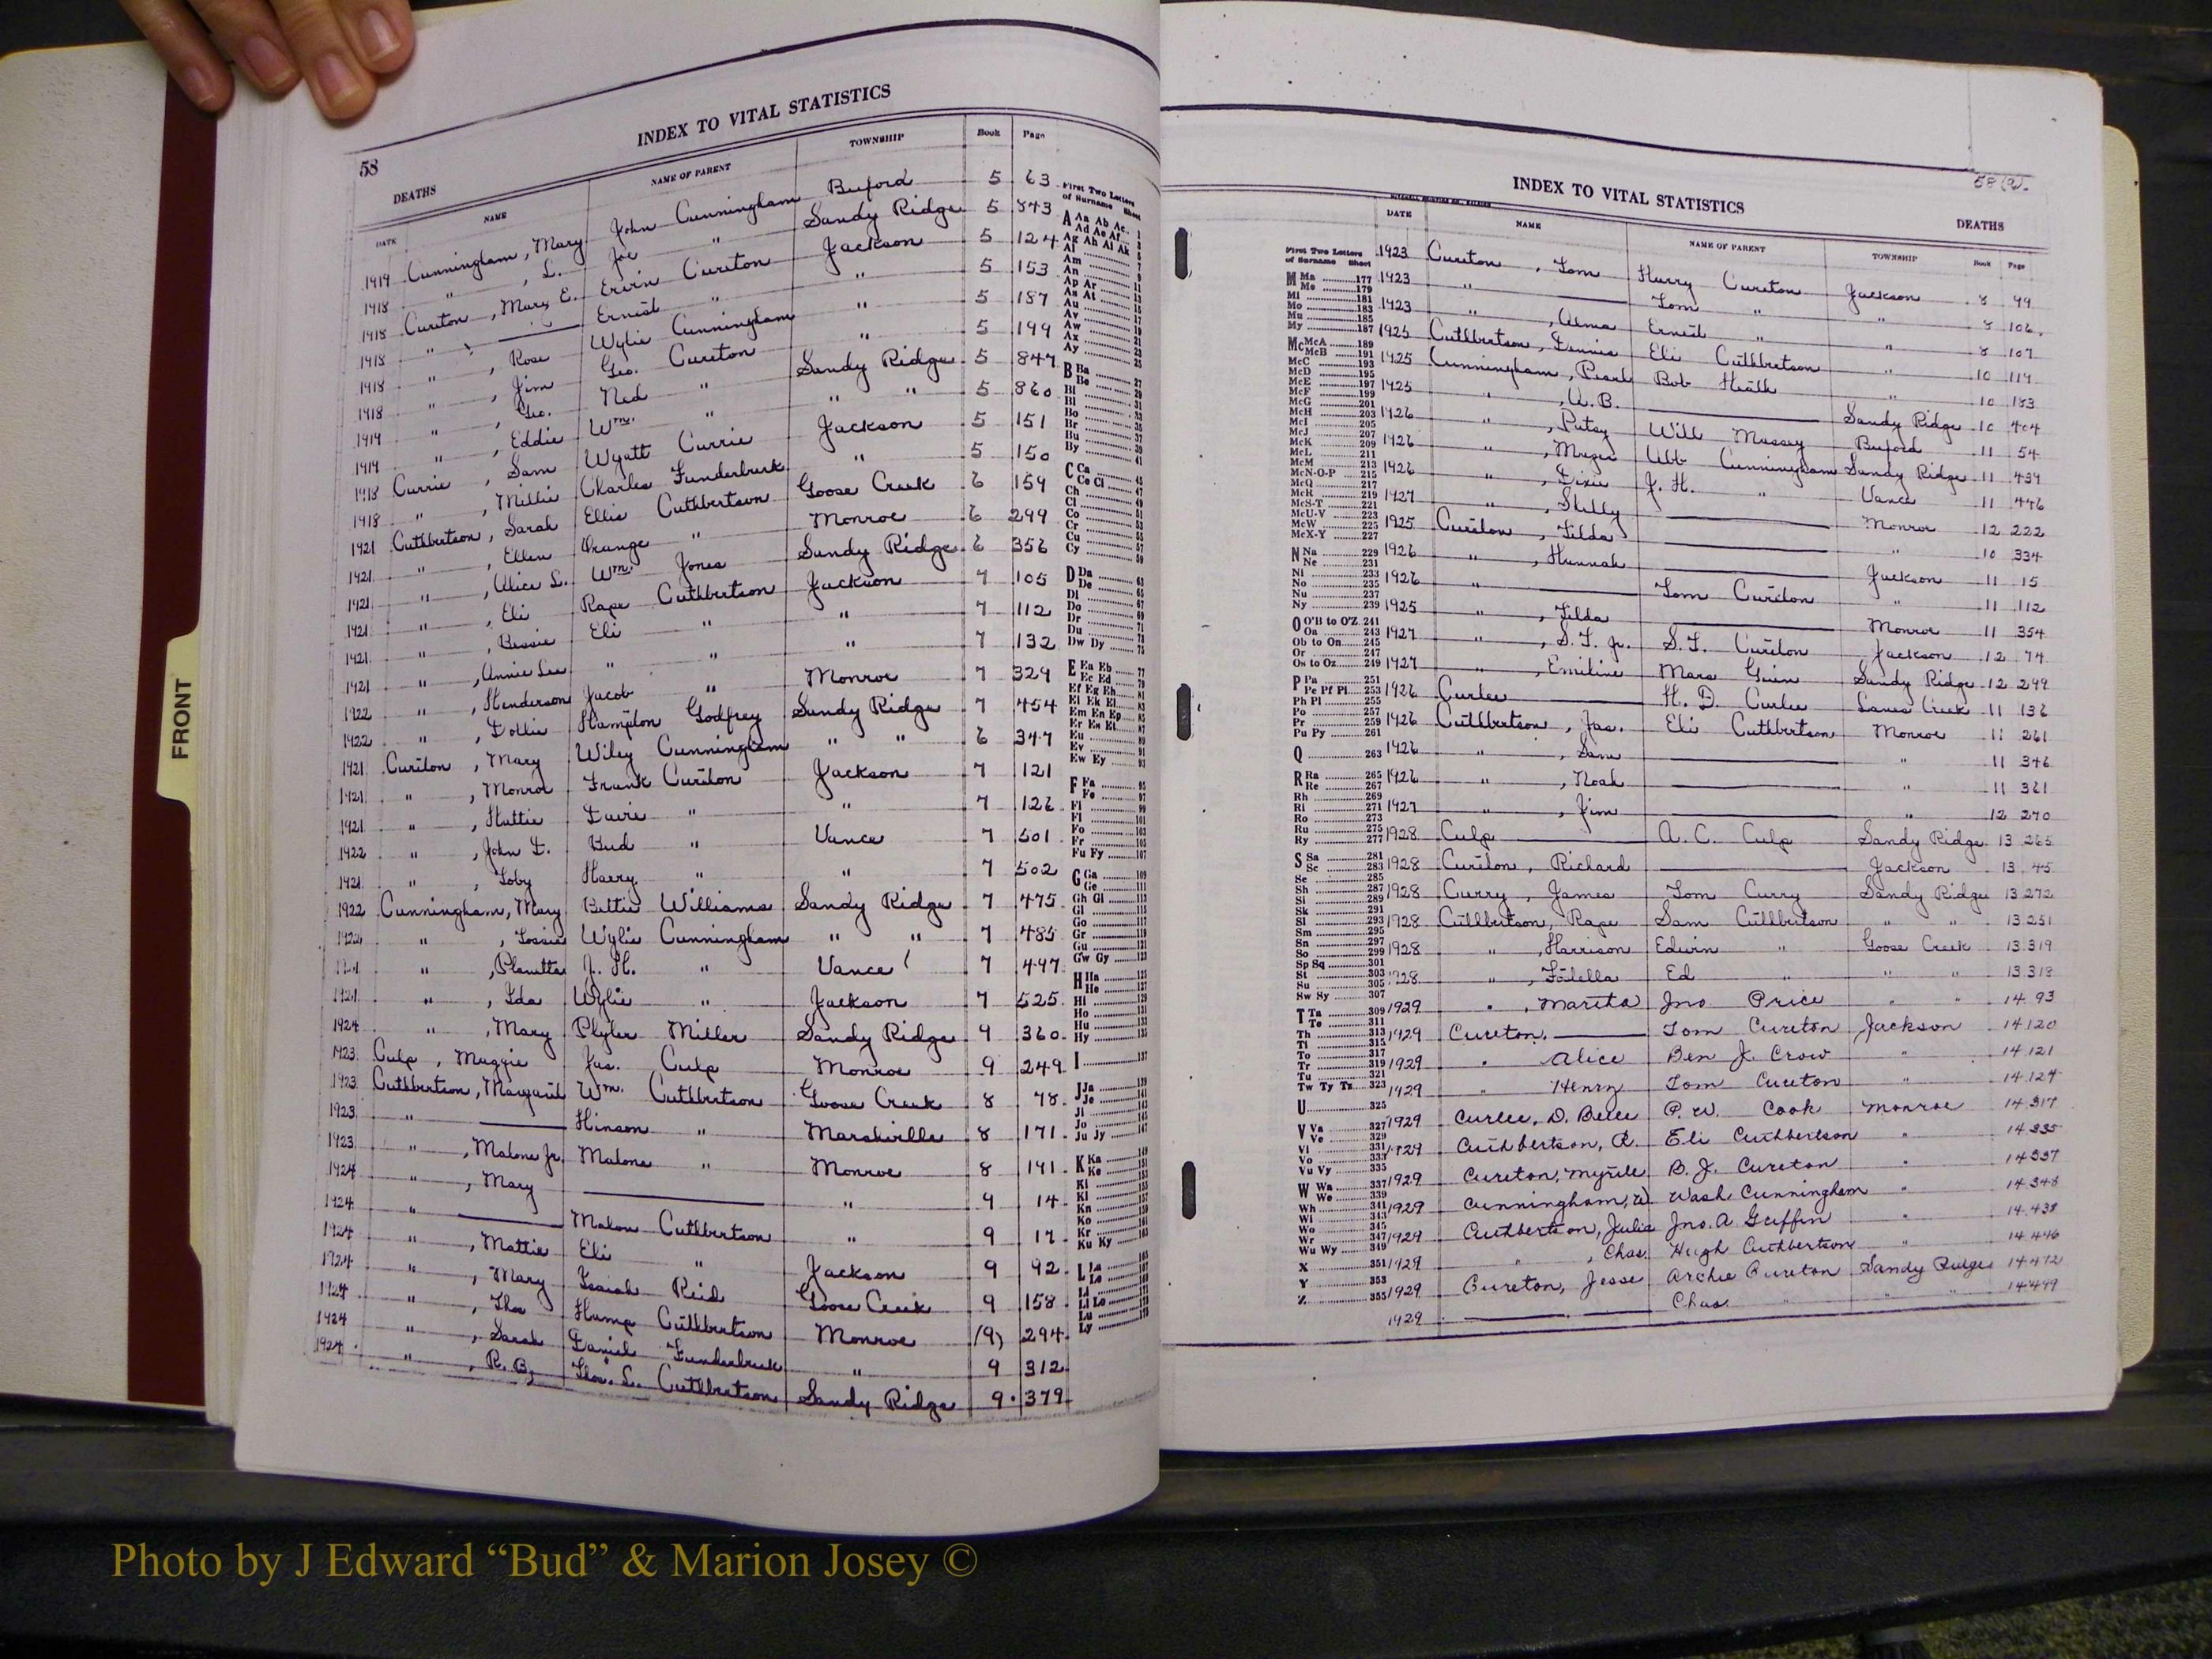 58
INDEX TO VITAL STATISTICS
DEATHS
DATE NAME NAME OF PARENT TOWNSHIP Book Page
1919 Cunningham, Mary John Cunningham Buford 5 63
1918 " L. Joe " Sandy Ridge 5 843
1918 Cureton, Mary E. Ervin Cureton Jackson 5 124
1918 " , — Ernest " " 5 153
1918 " , Rose Wylie Cunningham " 5 187
1918 " , Jim Geo. Cureton " 5 199
1919 " , Geo. Ned " Sandy Ridge 5 847
1919 " , Eddie Wm. " " " 5 860
1918 Currie , Sam Wyatt Currie Jackson 5 151
1918 " , Millie Charles Funderburk " 5 150
1921 Cuthbertson, Sarah Ellis Cuthbertson Goose Creek 6 159
1921 " , Ellen Orange " Monroe 6 299
1921 " , Alice L. Wm. Jones Sandy Ridge 6 356
1921 " , Eli Rape Cuthbertson Jackson 7 105
1921 " , Bessie Eli " " 7 112
1921 " , Annie Lee " " " 7 132
1922 " , Henderson Jacob " Monroe 7 329
1922 " , Dollie Hampton Godfrey Sandy Ridge 7 454
1921 Cureton , Mary Wiley Cunningham " " 6 347
1921 " , Monroe Frank Cureton Jackson 7 121
1921 " , Hattie " " 7 126
1922 " , John D. Bud " Vance 7 501
1921 " , Toby Harry " " 7 502
1922 Cunningham, Mary Bettie Williams Sandy Ridge 7 475
1922 " , Wylie Cunningham " " 7 485
" , J. H. " Vance 7 497
1921 " , Ida Wylie " Jackson 7 525
1924 " , Mary Plyler Miller Sandy Ridge 9 360
1923 Culp , Maggie Jas. Culp Monroe 9 249
1923 Cuthbertson, Margaret Wm. Cuthbertson Goose Creek 8 78
1923 " — Hinson " Marshville 8 171
1923 " , Malone Jr. Malone " Monroe 8 191
1924 " , Mary — " 9 14
1924 " — Cuthbertson " 9 17
1924 " , Mattie Eli " Jackson 9 92
1924 " , Mary Isaiah Reid Goose Creek 9 158
1924 " , Thos Hump Cuthbertson Monroe (9) 294
1924 " , Sarah Daniel Funderburk " 9 312
1924 " , R. B. Thos. L. Cuthbertson Sandy Ridge 9 379
First Two Letters of Surname Sheet
A Aa Ab Ac
Ad Ae Af
Ag Ah Ai Ak
Al
Am
An
Ap Ar
As At
Au
Av
Aw
Ax
Ay
B Ba
Be
Bi
Bl
Bo
Br
Bu
By
C Ca
Ce Ci
Ch
Cl
Co
Cr
Cu
Cy
D Da
De
Di
Do
Dr
Du
Dw Dy
E Ea Eb
Ec Ed
Ef Eg Eh
Ei Ek El
Em En Ep
Er Es Et
Eu
Ev
Ew Ey
F Fa
Fe
Fi
Fl
Fo
Fr
Fu Fy
G Ga
Ge
Gh Gi
Gl
Go
Gr
Gu
Gw Gy
H Ha
He
Hi
Ho
Hu
Hy
I
J Ja
Je
Ji
Jo
Ju Jy
K Ka
Ke
Ki
Kl
Kn
Ko
Kr
Ku Ky
L La
Le
Li
Ll Lo
Lu
Ly
FRONT
58 (a).
INDEX TO VITAL STATISTICS
DEATHS
DATE NAME NAME OF PARENT TOWNSHIP Book Page
1923 Cureton , Tom Harry Cureton Jackson 8 99
1923 " — Tom " " 8 106
1923 " , Alma Ernest " " 8 107
1925 Cuthbertson, Dennis Eli Cuthbertson " 10 119
1925 Cunningham, Pearl Bob Heath " 10 183
1925 " , A. B. — Sandy Ridge 10 404
1926 " , Patsy Will Massey Buford 11 54
1926 " , Cunningham Sandy Ridge 11 439
1926 " , Dixie J. H. " Vance 11 446
1927 " , Shelly — Monroe 12 222
1925 Cureton , Tilda — " 10 334
1926 " , Hannah — Jackson 11 15
1926 " — Tom Cureton " 11 112
1925 " , Tilda — Monroe 11 354
1927 " , S. T. Jr. S. T. Cureton Jackson 12 74
1927 " , Emiline Sandy Ridge 12 299
1926 Curlee — H. D. Curlee Lanes Creek 11 136
1926 Cuthbertson, Jas. Eli Cuthbertson Monroe 11 261
1926 " , Sam — " 11 346
1926 " , Noah — " 11 361
1927 " , Jim — " 12 270
1928 Culp — A. C. Culp Sandy Ridge 13 265
1928 Cureton, Richard — Jackson 13 45
1928 Curry, James Tom Curry Sandy Ridge 13 272
1928 Cuthbertson, Rape Sam Cuthbertson " " 13 251
1928 " , Harrison Edwin " Goose Creek 13 319
1928 " , Ed " " " 13 318
1929 " , Marita Jno Price " " 14 93
1929 Cureton, — Tom Cureton Jackson 14 120
1929 " Alice Ben J. Crow " 14 121
1929 " Henry Tom Cureton " 14 124
1929 Curlee, D. Belle P. W. Cook Monroe 14 317
1929 Cuthbertson, R. Eli Cuthbertson " 14 335
1929 Cureton, Myrtle B. J. Cureton " 14 337
1929 Cunningham, W. Wash Cunningham " 14 348
1929 Cuthbertson, Julia Jno. A. Griffin " 14 438
1929 " , Chas. Hugh Cuthbertson " 14 446
1929 Cureton, Jesse Archie Cureton Sandy Ridge 14 472
1929 " — Chas. " " " 14 499
First Two Letters of Surname Sheet
M Ma 177
Me 179
Mi 181
Mo 183
Mu 185
My 187
Mc McA 189
McB 191
McC 193
McD 195
McE 197
McF 199
McG 201
McH 203
McI 205
McJ 207
McK 209
McL 211
McM 213
McN-O-P 215
McQ 217
McR 219
McS-T 221
McU-V 223
McW 225
McX-Y 227
N Na 229
Ne 231
Ni 233
No 235
Nu 237
Ny 239
O O'B to O'Z 241
Oa 243
Ob to On 245
Or 247
Os to Oz 249
P Pa 251
Pe Pf Pi 253
Ph Pl 255
Po 257
Pr 259
Pu Py 261
Q 263
R Ra 265
Re 267
Rh 269
Ri 271
Ro 273
Ru 275
Ry 277
S Sa 281
Sc 283
Se 285
Sh 287
Si 289
Sk 291
Sl 293
Sm 295
Sn 297
So 299
Sp Sq 301
St 303
Su 305
Sw Sy 307
T Ta 309
Te 311
Th 313
Ti 315
To 317
Tr 319
Tu 321
Tw Ty Tz 323
U 325
V Va 327
Ve 329
Vi 331
Vo 333
Vu Vy 335
W Wa 337
We 339
Wh 341
Wi 343
Wo 345
Wr 347
Wu Wy 349
X 351
Y 353
Z 355
Photo by J Edward “Bud” & Marion Josey ©